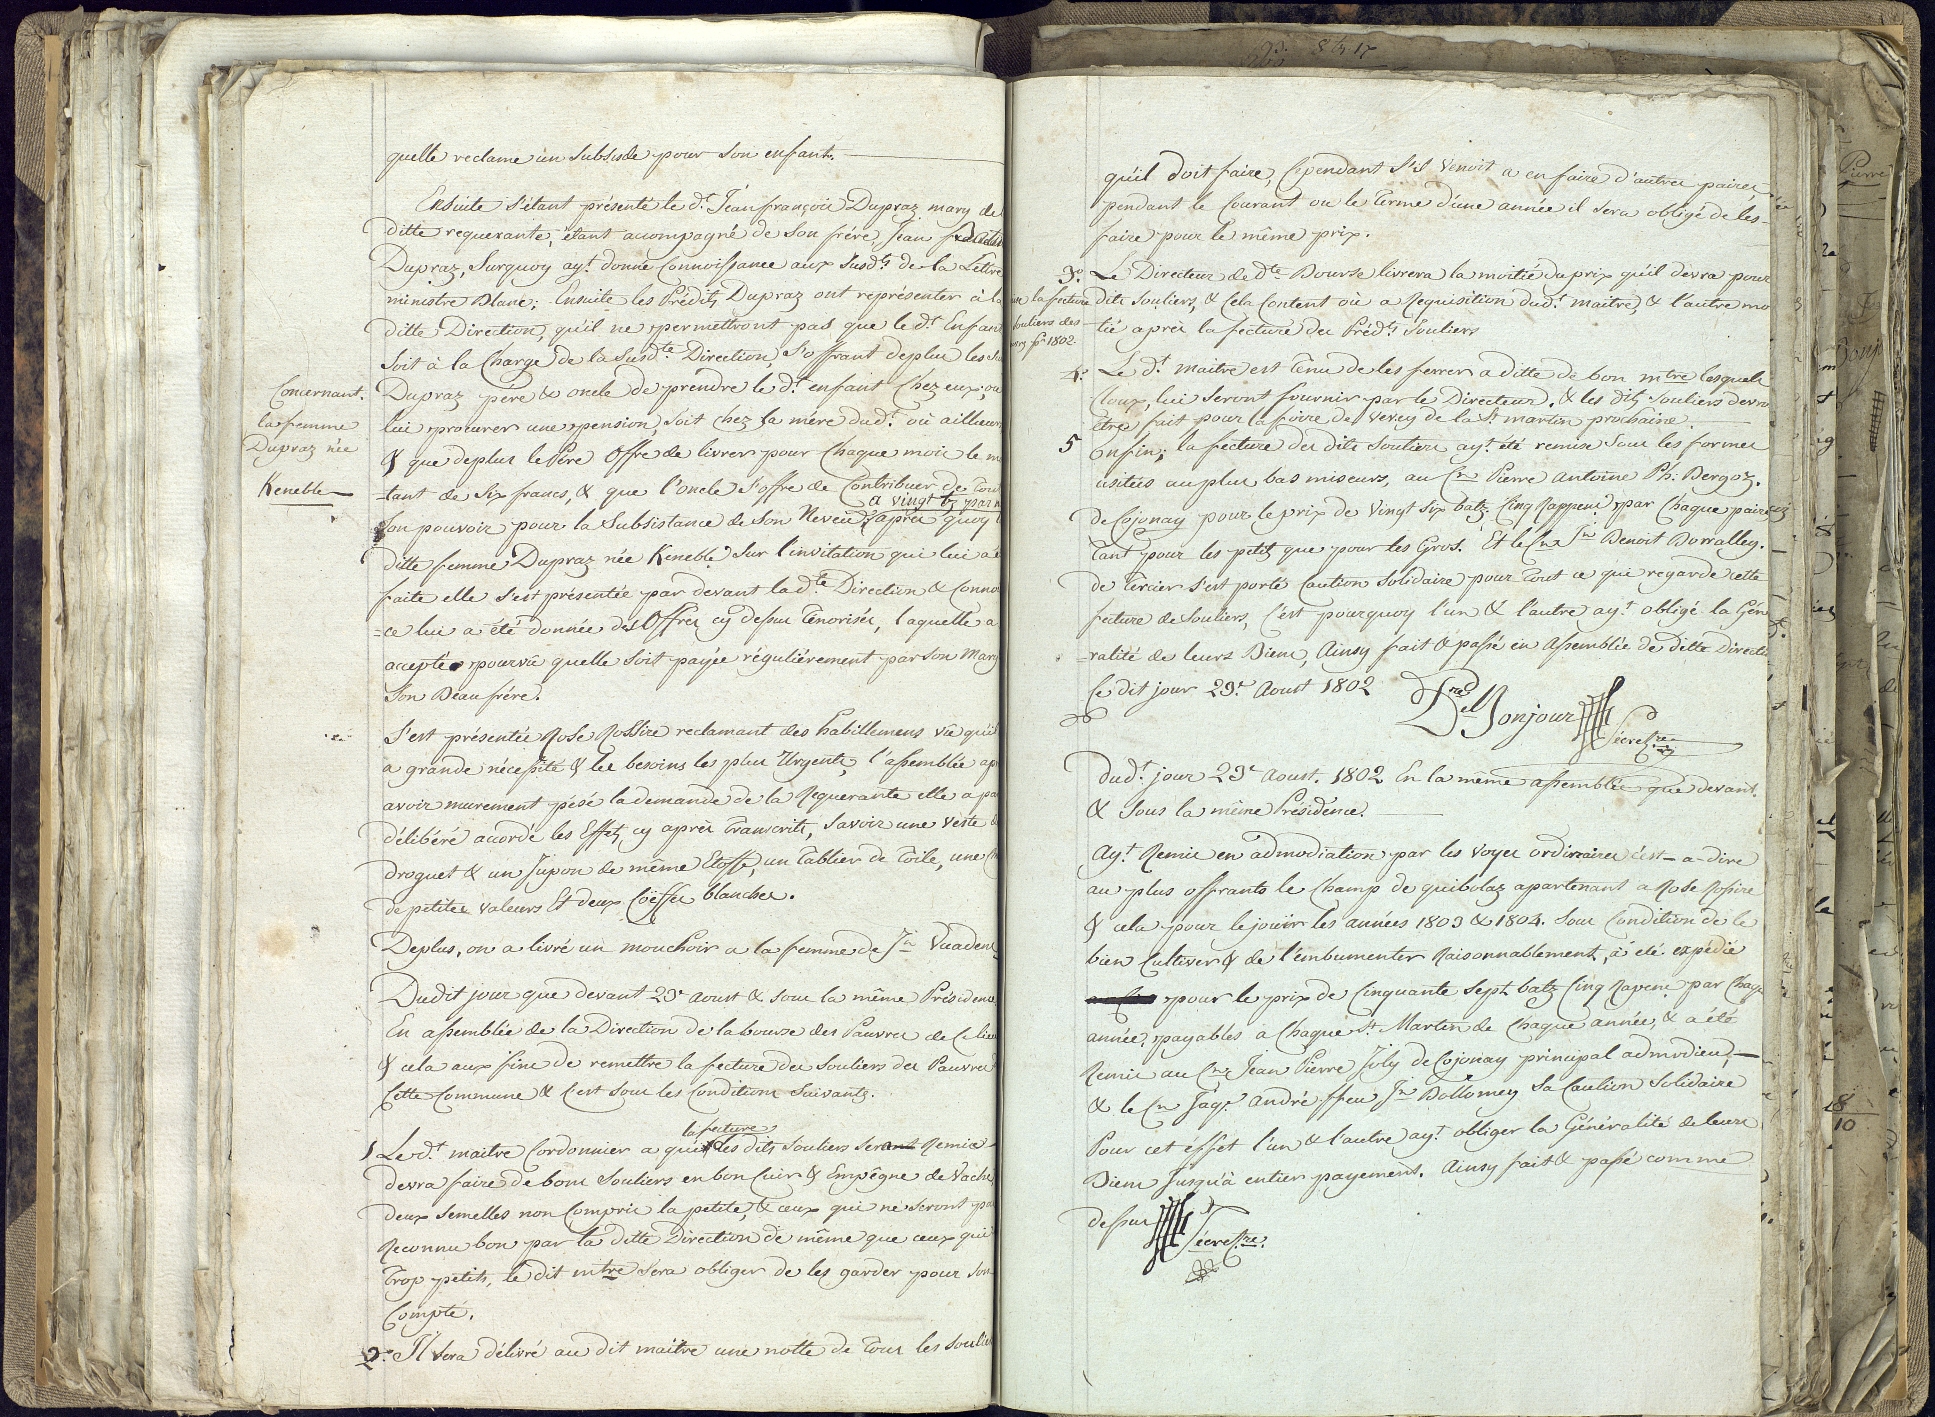 quelle reclame un Subside pour Son enfant.
Ensuite s'étant présenté le d.t Jean françois Dupraz mary de
ditte requerante, étant acompagné de Son frére, Jean
Dupraz, Surquoy ay.t donné Connoissance aux Susd.ts de la Lettre
ministre Blanc; Ensuite les Prédits Dupraz ont représenter à la
ditte Direction, qu'il ne permettront pas que le d.t Enfant
Soit à la Charge de la Susd.te Direction, S'offrant deplus les
Concernant.
la femme
Dupraz née
Keneble
Dupraz pére & oncle de prendre le d.t enfant Chez eux; ou
lui procurer une pension, soit chez Sa mére dud.t où ailleurs
& que deplus le Pére Offre de livrer pour Chaque mois le m
-tant de Six francs, & que l'oncle S'offre de Contribuer de Tout
a vingt bz par
Son pouvoir pour la Subsistance de Son Neveu après quoy
ditte femme Dupraz née Keneble Sur l'invitation qui lui a
faite elle s'est présentée par devant lad.te Direction & Connoi
=ce lui a été donnée des Offres cy dessus Tenorisés, laquelle a
accepté pourvû quelle Soit payée réguliérement par Son Mary
Son Beaufrére.
S'est présentée Rose Rossire reclamant des habillemens vû qu'il
a grande nécessité & les besoins les plus Urgents, l'assemblée ap
avoir murement pésé la demande de la Requerante elle a pa
délibéré acordé les Effets cy après Transcrits, Savoir une Veste
droguet & un Jupon de même Etoffe, un Tablier de Toile, une
de petites Valeurs Et deux Coëffes blanches.
Deplus, on a livré un mouchoir a la femme de J.n Vuadens
Dudit jour que devant 29.e Aoust & sous la même Présidence
En assemblée de la Direction de la bourse des Pauvres de Ce lieu
& cela aux fins de remettre la fecture des Souliers des Pauvres
Cette Commune & C'est Sous les Conditions Suivants.
la fecture
1. Le d.t maitre Cordonnier a qui les dits Souliers Remis
devra faire de bons Souliers en bon Cuir & Empêgne de Vache
deux Semelles non Compris la petite, & ceux qui ne Seront pas
Reconnu bon par la ditte Direction de même que ceux qui
Trop petits, le dit mtre Sera obliger de les garder pour Son
Compte.
2.° Il Sera délivré au dit maître une notte de Tous les Soulie
qu'il doit faire, Cependant S'il Venoit a en faire d'autres paires,
pendant le Courant ou le Terme d'une année il sera obligé de les
faire pour le même prix.
3.° Le Directeur de d.te Bourse livrera la moitié du prix qu'il devra pour
la fecture
Souliers des
1802
dits Souliers, & Cela Content où a Requisition dud.t maitre, & l'autre moi
tié après la fecture des Préd.ts Souliers
4.° Le d.t maitre est Tenu de les ferrer a ditte de bon mtre lesquels
Cloux, lui Seront fournis par le Directeur. & les dits Souliers devro
être fait pour la foire de Vevey de la S.t martin prochaine.
5 Enfin; la fecture des dits Souliers ay.t été remise Sous les formes
usitées au plus bas miseurs, au C.en Pierre Antoine Ph: Bergoz.
de Cojonay pour le prix de Vingt Six batz Cinq Rappens par Chaque paires
Tant pour les petits que pour les Gros. Et le C.n J.n Benoit Dorralley.
de Tercier S'est porté Caution Solidaire pour Tout ce qui regarde cette
fecture de Souliers, C'est pourquoy l'un & l'autre ay.t obligé la Géné
=ralité de leurs Biens, Ainsy fait & passé en Assemblée de ditte Directi
Ce dit jour 29.e Aoust 1802
Bonjour
Sécretre
Dud.t jour 29.e Aoust. 1802 En la même assemblée que devant.
& Sous la même Présidence.
Ay.t Remis en admodiation par les Voyes ordinaires c'est-a-dire
au plus offrants le Champ de quibolaz apartenant a Rose Rossire
& cela pour le jouir les années 1803 & 1804. Sous Condition de le
bien Cultiver & de l'embumenter Raisonnablement, a été expédié
pour le prix de Cinquante Sept batz Cinq Rapens par Chaqe
année, payables a Chaque S.t Martin de Chaque année, & a été
Remis au C.en Jean Pierre Joly de Cojonay principal admodieur,
& le C.n Jaq.s André ffeu J.n Dollomey Sa Caution Solidaire
Pour cet éffet l'un & l'autre ay.t obliger la Généralité de leurs
Biens Jusqu'à entier payement. Ainsy fait & passé comme
dessus
Sécretre.